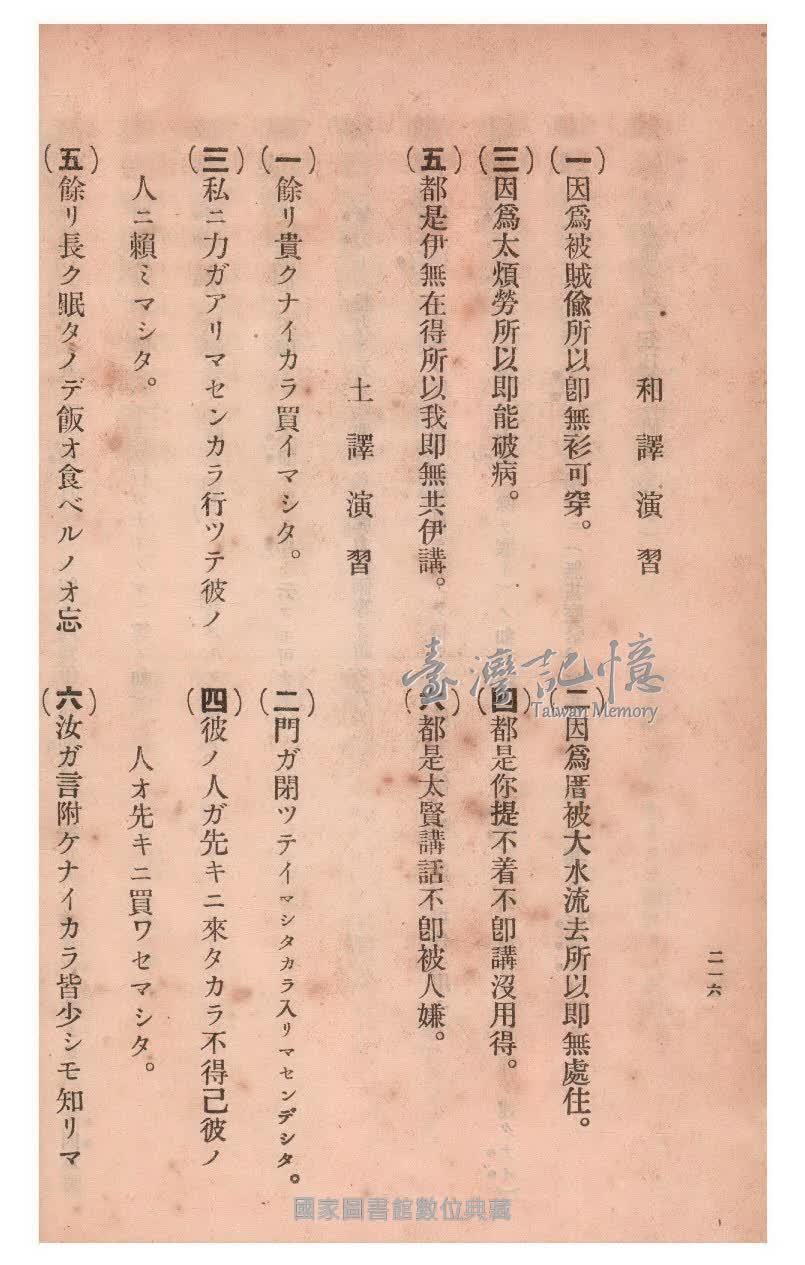 二一六
和譯演習
(一)因爲被賊偸所以卽無衫可穿。
(二)因爲厝被大水流去所以卽無處住。
(三)因爲太煩勞所以卽能破病。
(四)都是你提不着不卽講沒用得。
(五)都是伊無在得所以我卽無共伊講。
(六)都是太賢講話不卽被人嫌。
土譯演習
(一)餘リ貴クナイカラ買イマシタ。
(二)門ガ閉ツテイマシタカラ入リマセンデシタ。
(三)私ニ力ガアリマセンカラ行ツテ彼ノ
人ニ賴ミマシタ。
(四)彼ノ人ガ先キニ來タカラ不得已彼ノ
人オ先キニ買ワセマシタ。
(五)餘リ長ク眠タノデ飯オ食ベルノオ忘
(六)汝ガ言附ケナイカラ皆少シモ知リマ
臺灣記憶
Taiwan Memory
國家圖書館數位典藏